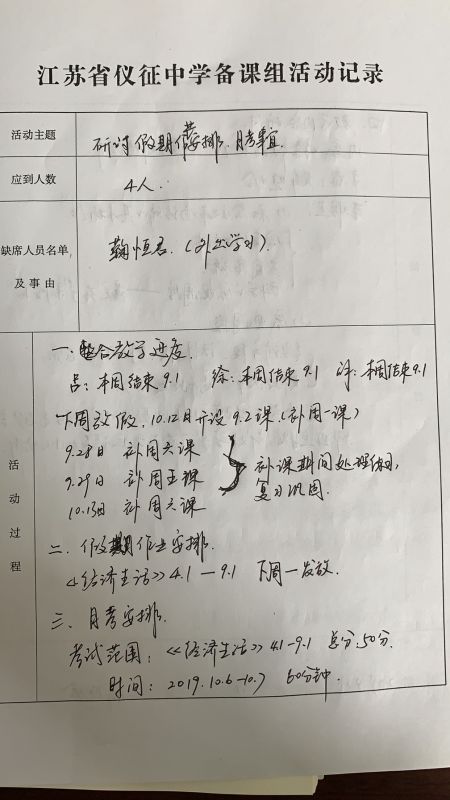 江苏省仪征中学备课组活动记录
活动主题
研讨假期安排、月考事宜.
应到人数
4人.
缺席人员名单
及事由
鞠恒君.（外出学习）.
活动过程
一.整合教学进度.
吕：本周结束9.1 徐：本周结束9.1 许：本周结束9.1
下周放假，10.12日开设9.2课.（补周一课）
9.28日 补周六课
9.29日 补周五课
10.13日 补周六课
补课期间处理作业，
复习巩固.
二.假期作业安排.
《经济生活》4.1—9.1 下周一发放.
三.月考安排.
考试范围：《经济生活》4.1-9.1 总分：50分.
时间：2019.10.6-10.7 60分钟.